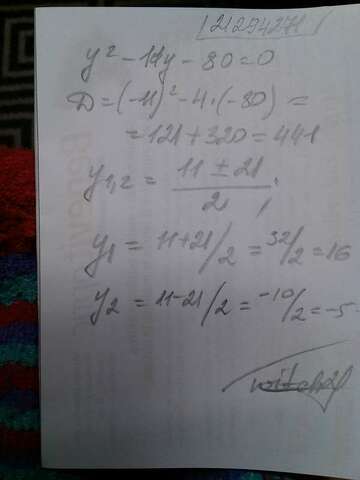 21294271
y² - 11y - 80 = 0
D = (-11)² - 4·(-80) =
= 121 + 320 = 441
y₁,₂ = (11 ± 21)/2 ;
y₁ = 11+21/2 = 32/2 = 16
y₂ = 11-21/2 = -10/2 = -5